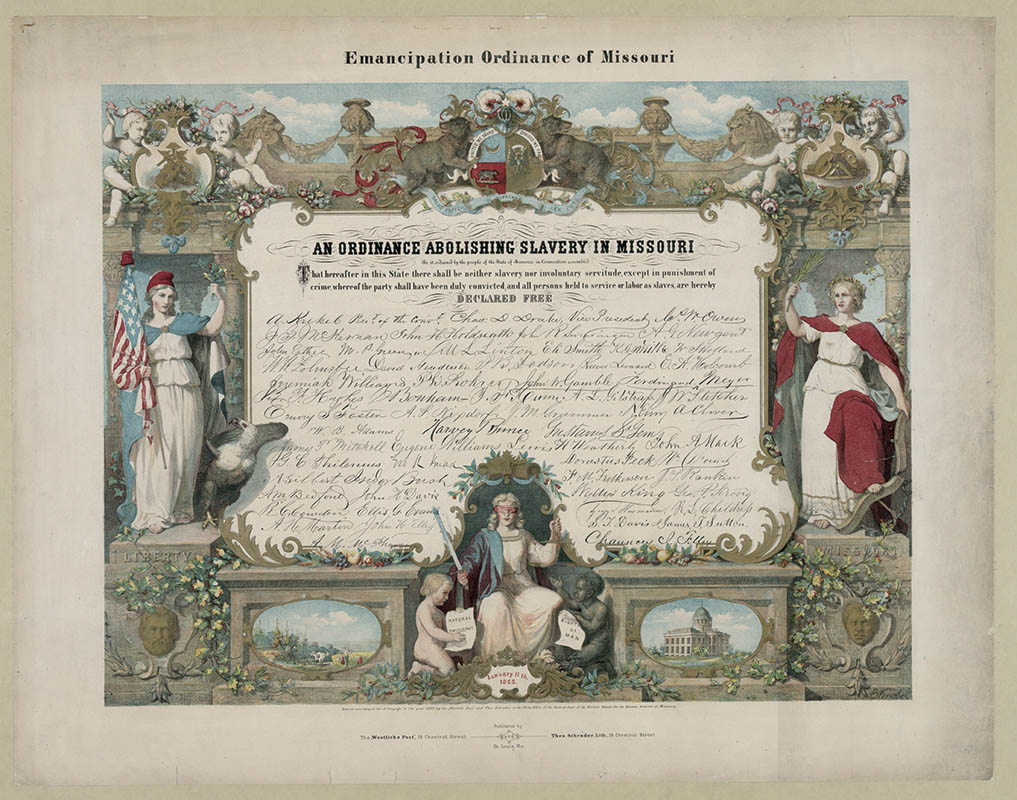 Emancipation Ordinance of Missouri
AN ORDINANCE ABOLISHING SLAVERY IN MISSOURI
Be it ordained by the people of the State of Missouri in Convention assembled
That hereafter in this State there shall be neither slavery nor involuntary servitude, except in punishment of
crime, whereof the party shall have been duly convicted, and all persons held to service or labor as slaves, are hereby
DECLARED FREE
A Krekel Pres. of the conv. Chas. D Drake, Vice President W Owens
McKernan John H Holdsworth John A G Newgent
M. P. Green M L Linton Eli Smith K. Smith W Holland
David Henderson B Dodson Lewis Leonard O. H. Holcomb
Jeremiah Williams P. R. Rohrer John W Gamble Ferdinand Meyer
Hughes Bonham T. B. Hume A. L. Gilstrap W Fletcher
Emory S Foster A. P. Nixdorf J M Grammer Henry A Clover
W. B. Adams Harvey Bunce Gustavus St Gem
James T Mitchell Eugene Williams Lewis H Weatherby John A Mack
Thilenius Dorastus Peck
Gilbert Isidor Bush F. M. Fulkerson Rankin
A M Bedford John H Davis Wyllys King Geo. P. Strong
R C Cowden Ellis G Evans W. S. Childress
A H Martin John H Ellis S T Davis James T Sutton
A M McPherson Chauncey I. Filley
LIBERTY
MISSOURI
NATURAL
PHILOSOPHY
RIGHTS
OF
MAN
January 11 th
1865.
Published by
The "Westliche Post", 18 Chestnut Street
Theo. Schrader, Lith, 14 Chestnut Street
St. Louis, Mo.